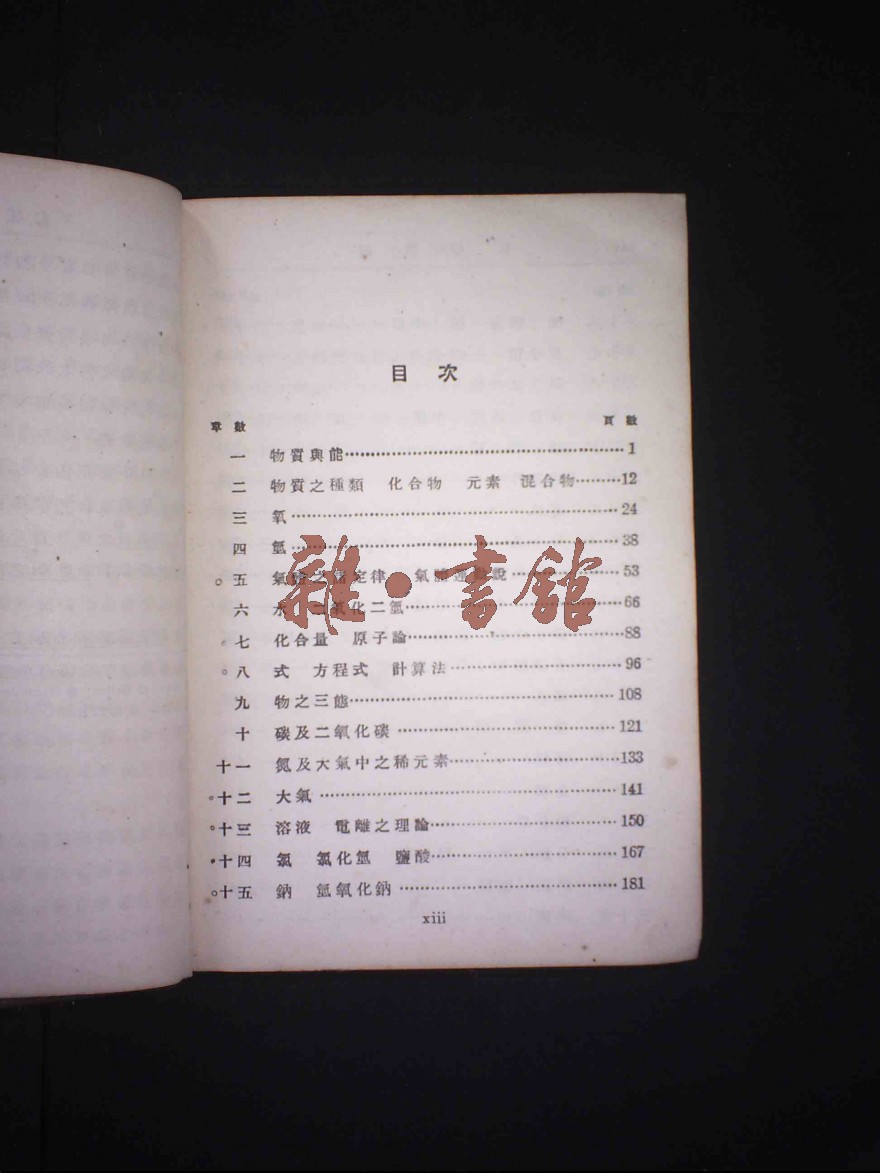 目次
章數 頁數
一 物質與能 1
二 物質之種類 化合物 元素 混合物 12
三 氧 24
四 氫 38
五 氣體之諸定律 氣體運動說 53
六 水 二氧化二氫 66
七 化合量 原子論 88
八 式 方程式 計算法 96
九 物之三態 108
十 碳及二氧化碳 121
十一 氮及大氣中之稀元素 133
十二 大氣 141
十三 溶液 電離之理論 150
十四 氯 氯化氫 鹽酸 167
十五 鈉 氫氧化鈉 181
xiii
雜·書館